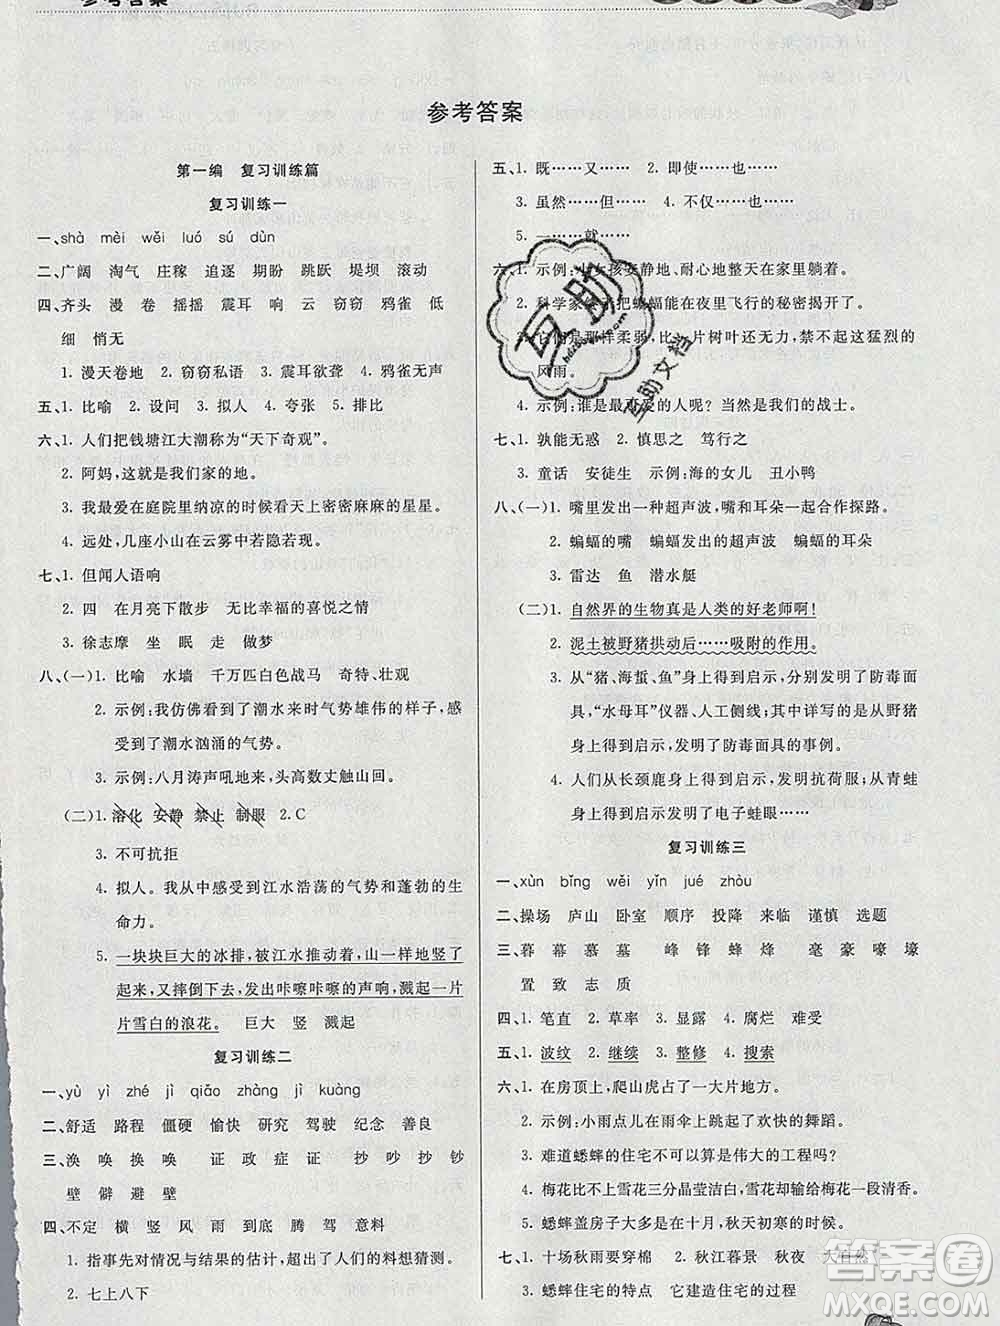 参考答案
参考答案
第一编　复习训练篇
复习训练一
一、shà　mèi　wěi　luó　sú　dùn
二、广阔　淘气　庄稼　追逐　期盼　跳跃　堤坝　滚动
四、齐头　漫　卷　摇摇　震耳　响　云　窃窃　鸦雀　低
细　悄无
1. 漫天卷地　2. 窃窃私语　3. 震耳欲聋　4. 鸦雀无声
五、1. 比喻　2. 设问　3. 拟人　4. 夸张　5. 排比
六、1. 人们把钱塘江大潮称为“天下奇观”。
2. 阿妈,这就是我们家的地。
3. 我最喜欢在庭院里纳凉的时候看天上密密麻麻的星星。
4. 远处,几座小山在云雾中若隐若现。
七、1. 但闻人语响
2. 四　在月亮下散步　无比幸福的喜悦之情
3. 徐志摩　坐　眠　走　做梦
八、(一)1. 比喻　水墙　千万匹白色战马　奇特、壮观
2. 示例:我仿佛看到了潮水来时气势雄伟的样子,感
受到了潮水汹涌的气势。
3. 示例:八月涛声吼地来,头高数丈触山回。
(二)1. 溶化　安静　禁止　制服　2. C
3. 不可抗拒
4. 拟人。我从中感受到江水浩荡的气势和蓬勃的生
命力。
5. 一块块巨大的冰排,被江水推动着,山一样竖了
起来,又摔倒下去,发出咔嚓咔嚓的声响,溅起一片
片雪白的浪花。　巨大　竖　溅起
复习训练二
一、yù　yì　zhé　jì　qiāo　zhàng　jǐ　kuàng
二、舒适　路程　僵硬　愉快　研究　驾驶　纪念　善良
三、涣　换　换　唤　　证　政　症　证　　抄　吵　抄　钞
壁　僻　避　壁
四、不定　横　竖　风　雨　到底　腾　驾　意料
1. 指事先对情况与结果的估计,超出了人们的料想猜测。
2. 七上八下
五、1. 既……又……　2. 即使……也……
3. 虽然……但……　4. 不仅……也……
5. 一……就……
六、1. 示例:小女孩安静地、耐心地整天在家里躺着。
2. 科学家终于把蝙蝠能在夜里飞行的秘密揭开了。
3. 它们是那样柔弱,比一片树叶还无力,禁不起这猛烈的
风雨。
4. 示例:谁是最可爱的人呢?当然是我们的战士。
七、1. 孰能无惑　2. 慎思之　笃行之
3. 童话　安徒生　示例:海的女儿　丑小鸭
八、(一)1. 嘴里发出一种超声波,嘴和耳朵一起合作探路。
2. 蝙蝠的嘴　蝙蝠发出的超声波　蝙蝠的耳朵
3. 雷达　鱼　潜水艇
(二)1. 自然界的生物真是人类的好老师啊!
2. 泥土被野猪拱动后……吸附的作用。
3. 从“猪、海蜇、鱼”身上得到启示,分别发明了防毒面
具,“水母耳”仪器、人工侧线;其中详写的是从野猪
身上得到启示,发明了防毒面具的事例。
4. 人们从长颈鹿身上得到启示,发明了抗荷服;从青蛙
身上得到启示发明了电子蛙眼……
复习训练三
一、xùn　bǐng　wěi　yǐn　jué　zhòu
二、操场　庐山　卧室　顺序　投降　来临　谨慎　选题
三、暮　幕　慕　墓　　峰　锋　蜂　烽　　毫　豪　嚎　壕
置　致　志　质
四、1. 笔直　2. 草率　3. 显露　4. 腐烂　难受
五、1. 波纹　2. 继续　3. 整修　4. 搜索
六、1. 在房顶上,爬山虎占了一大片地方。
2. 示例:小雨点儿在雨伞上跳起了欢快的舞蹈。
3. 难道蟋蟀的住宅不可以算是伟大的工程吗?
4. 梅花比起雪花三分晶莹洁白,雪花却输给梅花一段清香。
5. 蟋蟀盖房子大多是在十月,秋天初寒的时候。
七、1. 十场秋雨要穿棉　2. 秋江暮景　秋夜　大自然
3. 蟋蟀住宅的特点　它建造住宅的才干
互助
互助文档
答案圈